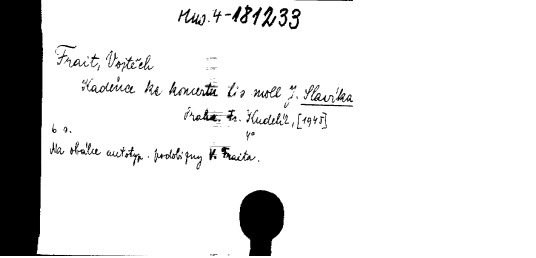 Mus. 4-181233
Frait, Vojtěch
Kadence ke koncertu fis moll J. Slavíka
Praha, Fr. Kudelík, [1945]
4°
6 s.
Na obálce autotyp. podobizny V. Fraita.